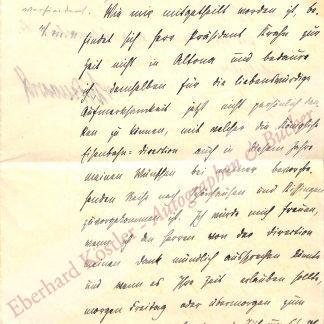 verhindert.
Wie mir mitgetheilt worden ist, be-
findet sich Herr Präsident Krahn zur
Zeit nicht in Altona und bedaure
ich demselben für die liebenswürdige
Aufmerksamkeit jetzt nicht persönlich dan-
ken zu können, mit welcher die Königliche
Eisenbahn-direction auch in diesem Jahre
meinen Wünschen bei meiner bevorste-
henden Reise nach und Kissingen
zuvorgekommen ist. Ich würde mich freuen,
wenn ich den Herren von der direction
meinen dank mündlich aussprechen könnte
und wenn es Ihre Zeit erlauben sollte,
morgen Freitag oder übermorgen zum
Eberhard Köstler Autographen & Bücher